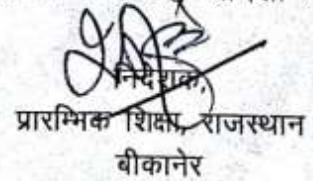 निदेशक,
प्रारम्भिक शिक्षा, राजस्थान
बीकानेर